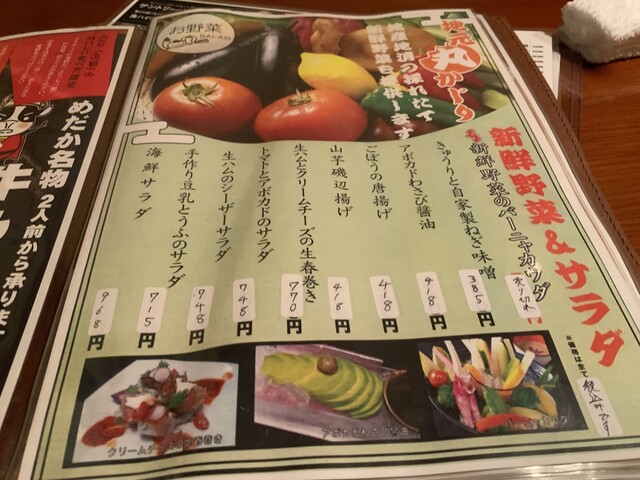 お野菜
SALAD
地元丸かじり
地産地消の採れたて
新鮮野菜をご提供します
新鮮野菜&サラダ
新鮮野菜のバーニャカウダ
売り切れ
円
きゅうりと自家製ねぎ味噌
385円
アボカドわさび醤油
418円
ごぼうの唐揚げ
418円
山芋磯辺揚げ
418円
生ハムとクリームチーズの生春巻き
770円
トマトとアボカドのサラダ
748円
生ハムのシーザーサラダ
748円
手作り豆乳とうふのサラダ
715円
海鮮サラダ
968円
※価格は全て税込みです
アボカドわさび醤油
めだか名物
2人前から承ります